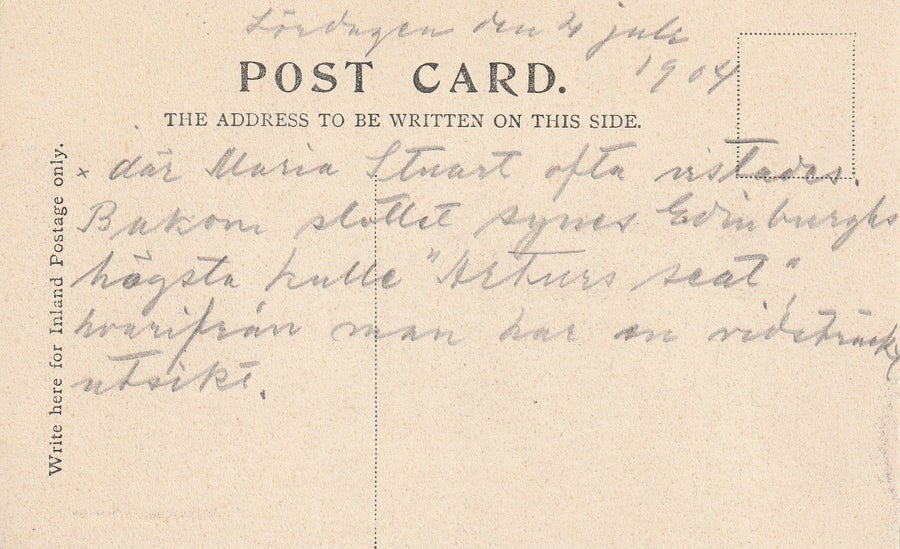 Lördagen den 2 juli
1904
POST CARD.
THE ADDRESS TO BE WRITTEN ON THIS SIDE.
Write here for Inland Postage only.
x där Maria Stuart ofta vistades.
Bakom slottet synes Edinburghs
högsta kulle "Arturs seat",
hvarifrån man har en vidsträckt
utsikt.